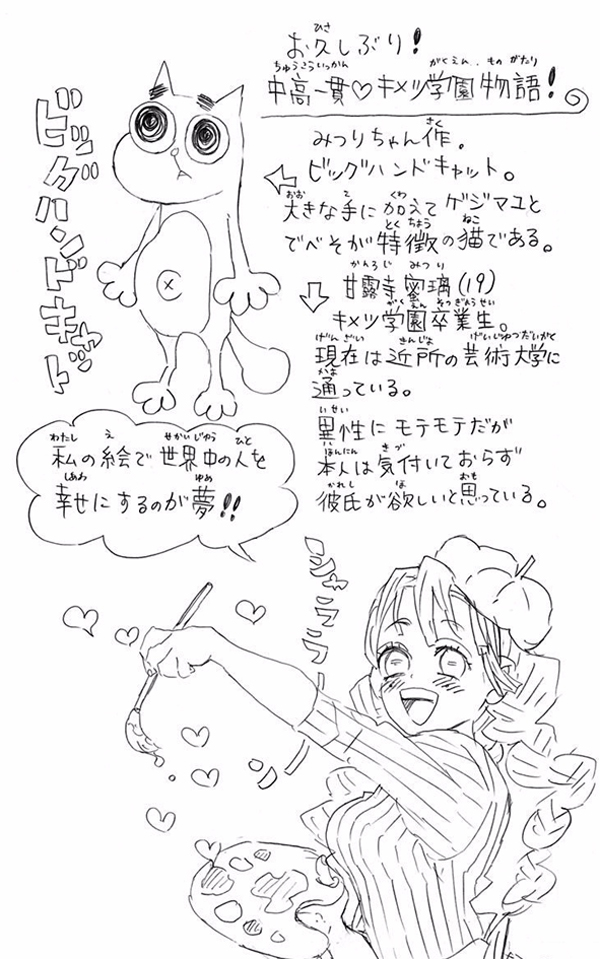 お久しぶり!
中高一貫♡キメツ学園物語!
ビッグハンドキャット
みつりちゃん作。
ビッグハンドキャット。
大きな手に加えてゲジマユと
でべそが特徴の猫である。
甘露寺蜜璃(19)
キメツ学園卒業生。
現在は近所の芸術大学に
通っている。
異性にモテモテだが
本人は気付いておらず
彼氏が欲しいと思っている。
私の絵で世界中の人を
幸せにするのが夢!!
シャララララーン